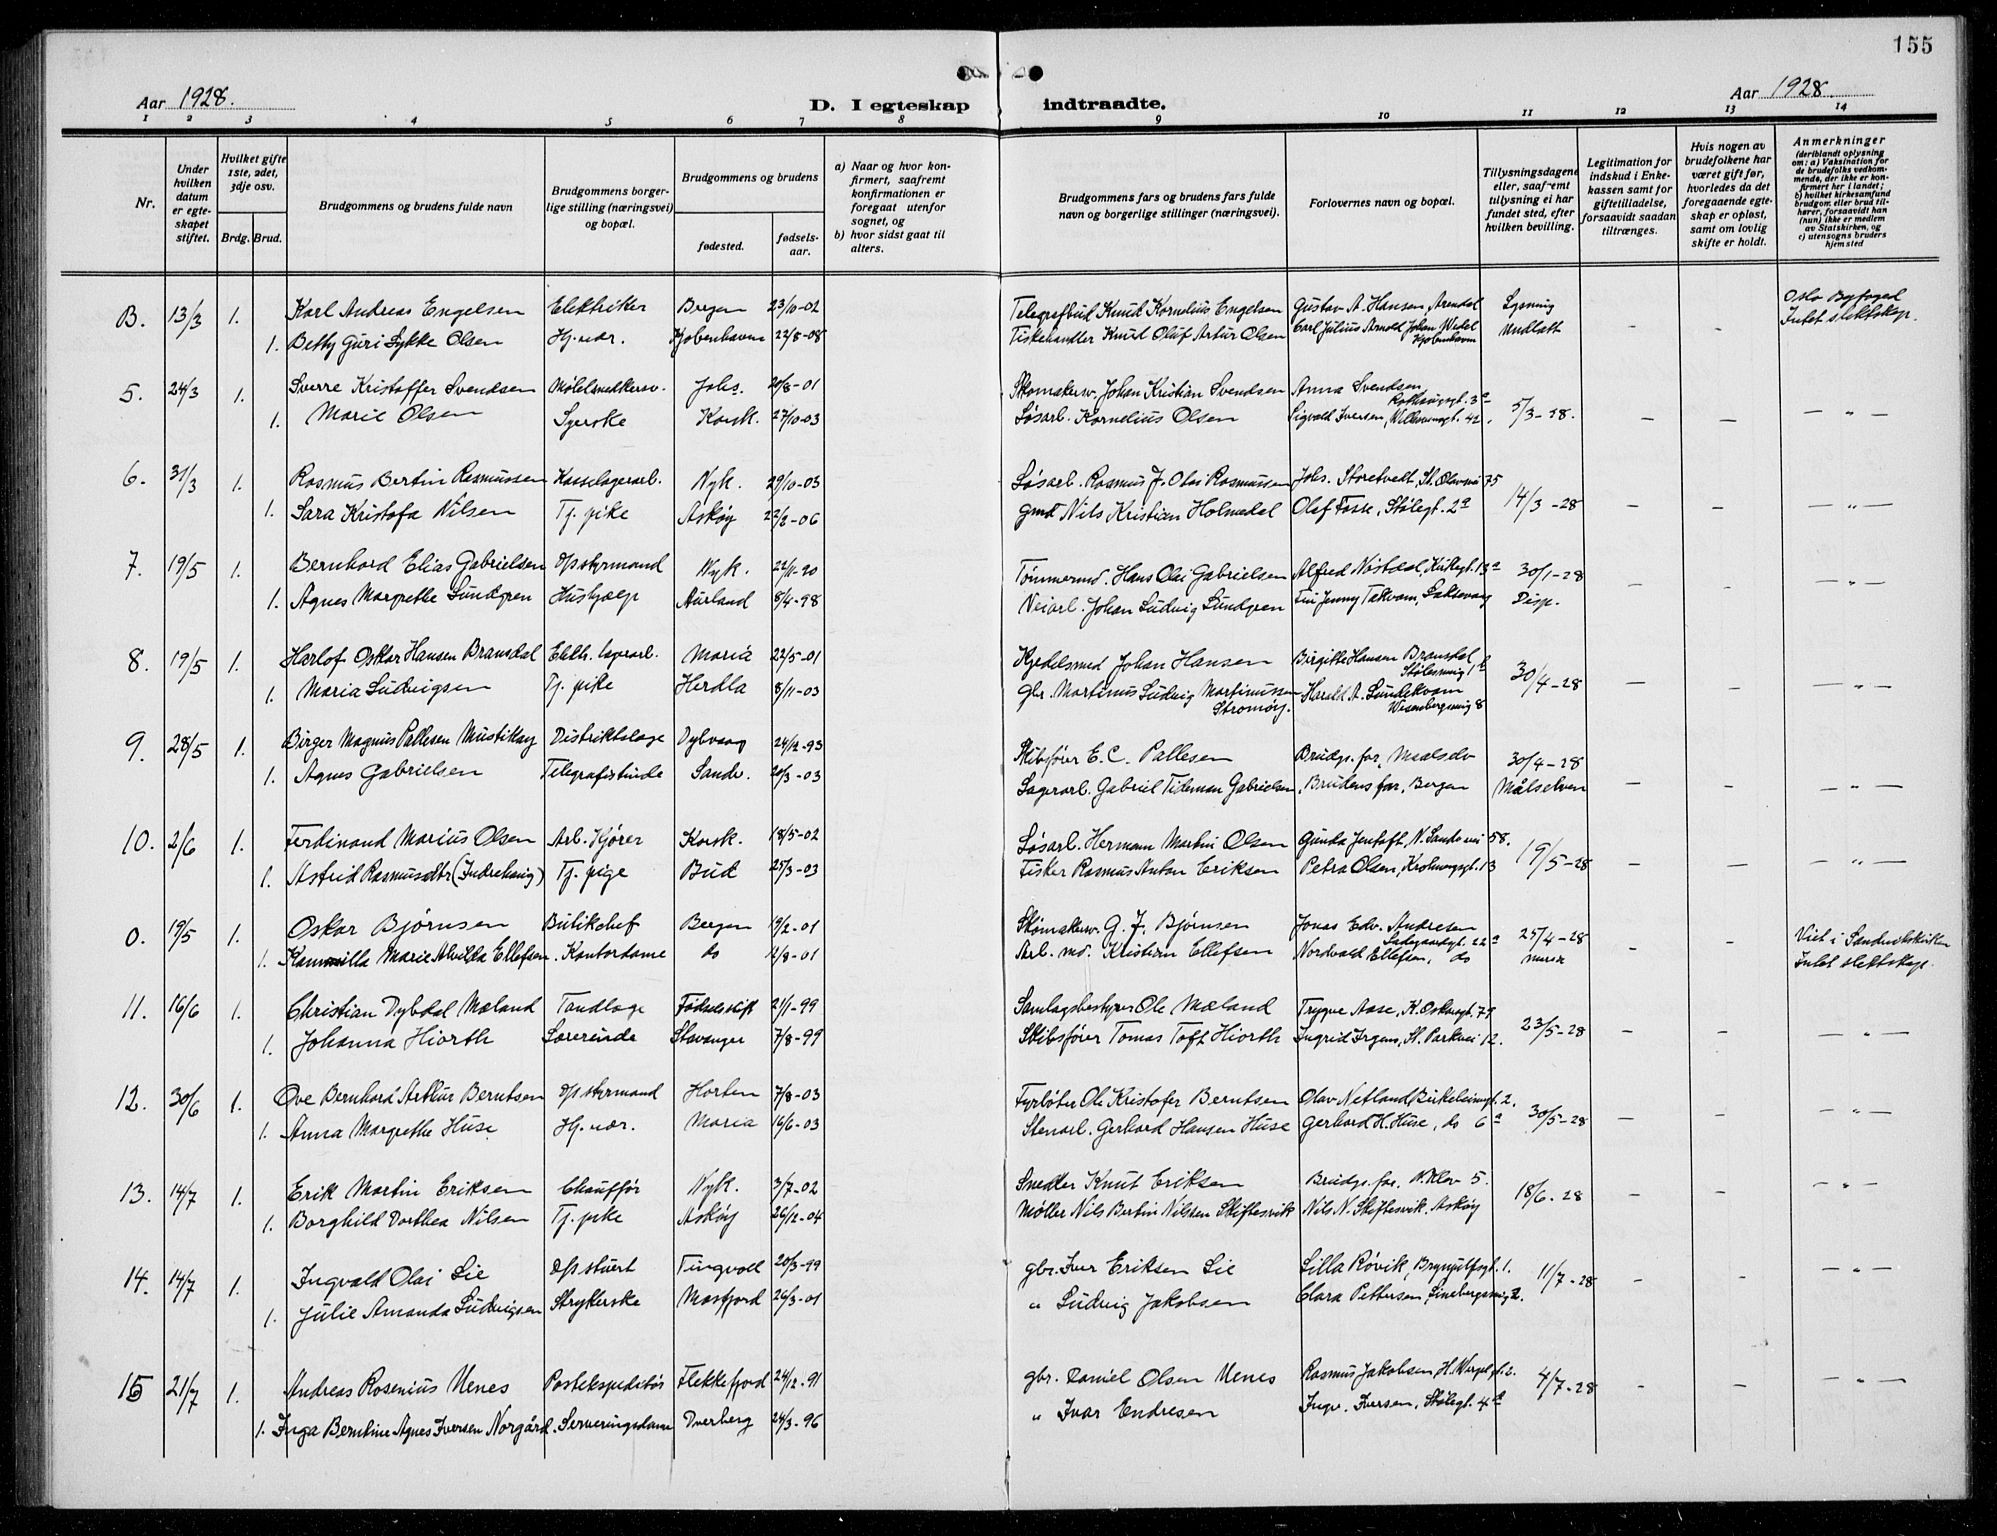 155
Aar 1928.
D. I egteskap indtraadte.
Aar 1928.
1 2 3 4 5 6 7 8 9 10 11 12 13 14
Nr.
Under hvilken datum er egteskapet stiftet.
Hvilket gifte 1ste, 2det, 3dje osv.
Brdg. Brud.
Brudgommens og brudens fulde navn
Brudgommens borgerlige stilling (næringsvei) og bopæl.
Brudgommens og brudens
fødested.
fødselsaar.
a) Naar og hvor konfirmert, saafremt konfirmationen er foregaat utenfor sognet, og
b) hvor sidst gaat til alters.
Brudgommens fars og brudens fars fulde navn og borgerlige stillinger (næringsvei).
Forlovernes navn og bopæl.
Tillysningsdagene eller, saafremt tillysning ei har fundet sted, efter hvilken bevilling.
Legitimation for indskud i Enkekassen samt for giftetilladelse, forsaavidt saadan tiltrænges.
Hvis nogen av brudefolkene har været gift før, hvorledes da det foregaaende egteskap er opløst, samt om lovlig skifte er holdt.
Anmerkninger
(deriblandt oplysning om: a) Vaksination for de brudefolks vedkommende, der ikke er konfirmert her i landet; b) hvilket kirkesamfund brudgom eller brud tilhører, forsaavidt han (hun) ikke er medlem av Statskirken, og c) utensogns bruders hjemsted
B. 13/3 1. Karl Andreas Engelsen Elektriker Bergen 23/10-02 Telegrafbud Knud Kornelius Engelsen Gustav A. Hansen, Arendal Lysning Oslo Byfoged
1. Betty Guri Lykke Olsen Hj. vær. Kjøbenhavn 22/8-08 Fiskehandler Knud Oluf Artur Olsen Carl Julius Arnold Johan Wedel Kjøbenhavn undlatt - - Intet slektskap.
5. 24/3 1. Sverre Kristoffer Svendsen Møbelsnedkersv. Johs. 20/8-01 Skomakersv. Johan Kristian Svendsen Anna Svendsen
1. Marie Olsen Syerske Korsk. 27/10-03 Løsarb. Kornelius Olsen Sigvald Iversen, 42. 5/3-28. - - - " -
6. 31/3 1. Rasmus Bertin Rasmussen Kasselagerarb. Nyk. 29/10-03 Løsarb. Rasmus J. Olai Rasmussen Johs. Storetvedt, St. Olavsvei 75
1. Sara Kristofa Nilsen Tj. pike Askøy 22/2-06 gmd Nils Kristian Holmedal Olaf Fosse, Stølegt. 2a 14/3-28 - - - " -
7. 19/5 1. Bernhard Elias Gabrielsen d/s styrmand Nyk. 22/11-90 Tømmermd. Hans Olai Gabrielsen Alfred Nøstdal, Kirkegt. 13a 30/1-28
1. Agnes Margrethe Lundgren Hushjælp Aurland 8/4-98 Veiarb. Johan Ludvig Lundgren Jenny Takvam, Laksevaag Disp. - - - " -
8. 19/5 1. Harlof Oskar Hansen Bransdal Elektr. lagerarb. Maria 22/5-01 Kjedelsmed Johan Hansen Birgitte Hansen Bransdal
1. Maria Ludvigsen Tj. pike Herdla 8/11-03 gbr. Martinus Ludvig Martinussen Strømøy. Harald A. Lundekvam 8 30/4-28 - - - " -
9. 28/5 1. Birger Magnus Pallesen Distriktslæge Dybvaag 24/2-93 Skibsfører E. C. Pallesen Brudgs. far, Maalselv 30/4-28
1. Agnes Gabrielsen Telegrafistinde Sandv. 20/3-03 Lagerarb. Gabriel Tideman Gabrielsen, Brudens far, Bergen Målselven - - - " -
10. 2/6 1. Ferdinand Marius Olsen Arb. kjører Korsk. 18/5-02 Løsarb. Hermann Martin Olsen Gunda Jentoft, N. Sandsvei 58.
1. Astrid Rasmusdtr (Indrehaug) Tj. pige Bud 25/3-03 Fisker Rasmus Anton Eriksen Petra Olsen, Krohnengt. 13 19/5-28 - - - " -
0. 19/5 1. Oskar Bjørnsen Butikchef Bergen 19/2-01 Skomakersv. G. J. Bjørnsen Jonas Edv. Andresen Ladegaardsgt. 22a 25/4-28 Viet i Sandvikskirken
1. Kammilla Marie Alvilda Ellefsen. Kontordame do 12/8-01 Arb. md. Kristian Ellefsen Nordvald Ellefsen, do - - Intet slektskap.
11. 16/6 1. Christian Dybdal Mæland Tandlæge Fødselsstift 21/1-99 Samlagsbestyrer Ole Mæland Trygve Aase, K. Oskarsgt. 71
1. Johanna Hiorth Lærerinde Stavanger 7/8-99 Skibsfører Tomas Toft Hiorth Ingrid Irgens, St. Parkvei 12. 23/5-28 - - - " -
12. 30/6 1. Ove Bernhard Arthur Berntsen d/s styrmand Horten 7/8-03 Fyrbøter Ole Kristofer Berntsen Olav Netland, Birkelundsgt. 2.
1. Anna Margrethe Huse Hj. vær. Maria 16/6-03 Stenarb. Gerhard Hansen Huse Gerhard H. Huse, do 6a 30/5-28 - - - " -
13. 14/7 1. Erik Martin Eriksen Chauffør Nyk. 3/7-02 Snedker Knut Eriksen Brudgs. far. 5.
1. Borghild Dorthea Nilsen Tj. pike Askøy 26/12-04 Møller Nils Bertin Nilssen Skiftesvik Nils N. Skiftesvik, Askøy 18/6-28 - - - " -
14. 14/7 1. Ingvald Olai Lie d/s stuert Tingvoll 20/3-99 gbr. Iver Eriksen Lie Silla Røvik, Brynjulfsgt. 1.
1. Julie Amanda Ludvigsen Strykerske Masfjord 26/3-01 " Ludvig Jakobsen Clara Pettersen, 2. 11/7-28 - - - " -
15 21/7 1. Andreas Rosenius Nenes Postekspeditør Flekkefjord 24/12-91 gbr. Daniel Olsen Nenes Rasmus Jakobsen H. Wergel.gt. 2.
1. Inga Berntine Agnes Iversen Norgård. Serveringsdame Dverberg 24/3-96 " Ivar Endresen Ingv. Iversen, Stølegt. 4a 4/7-28 - - - " -